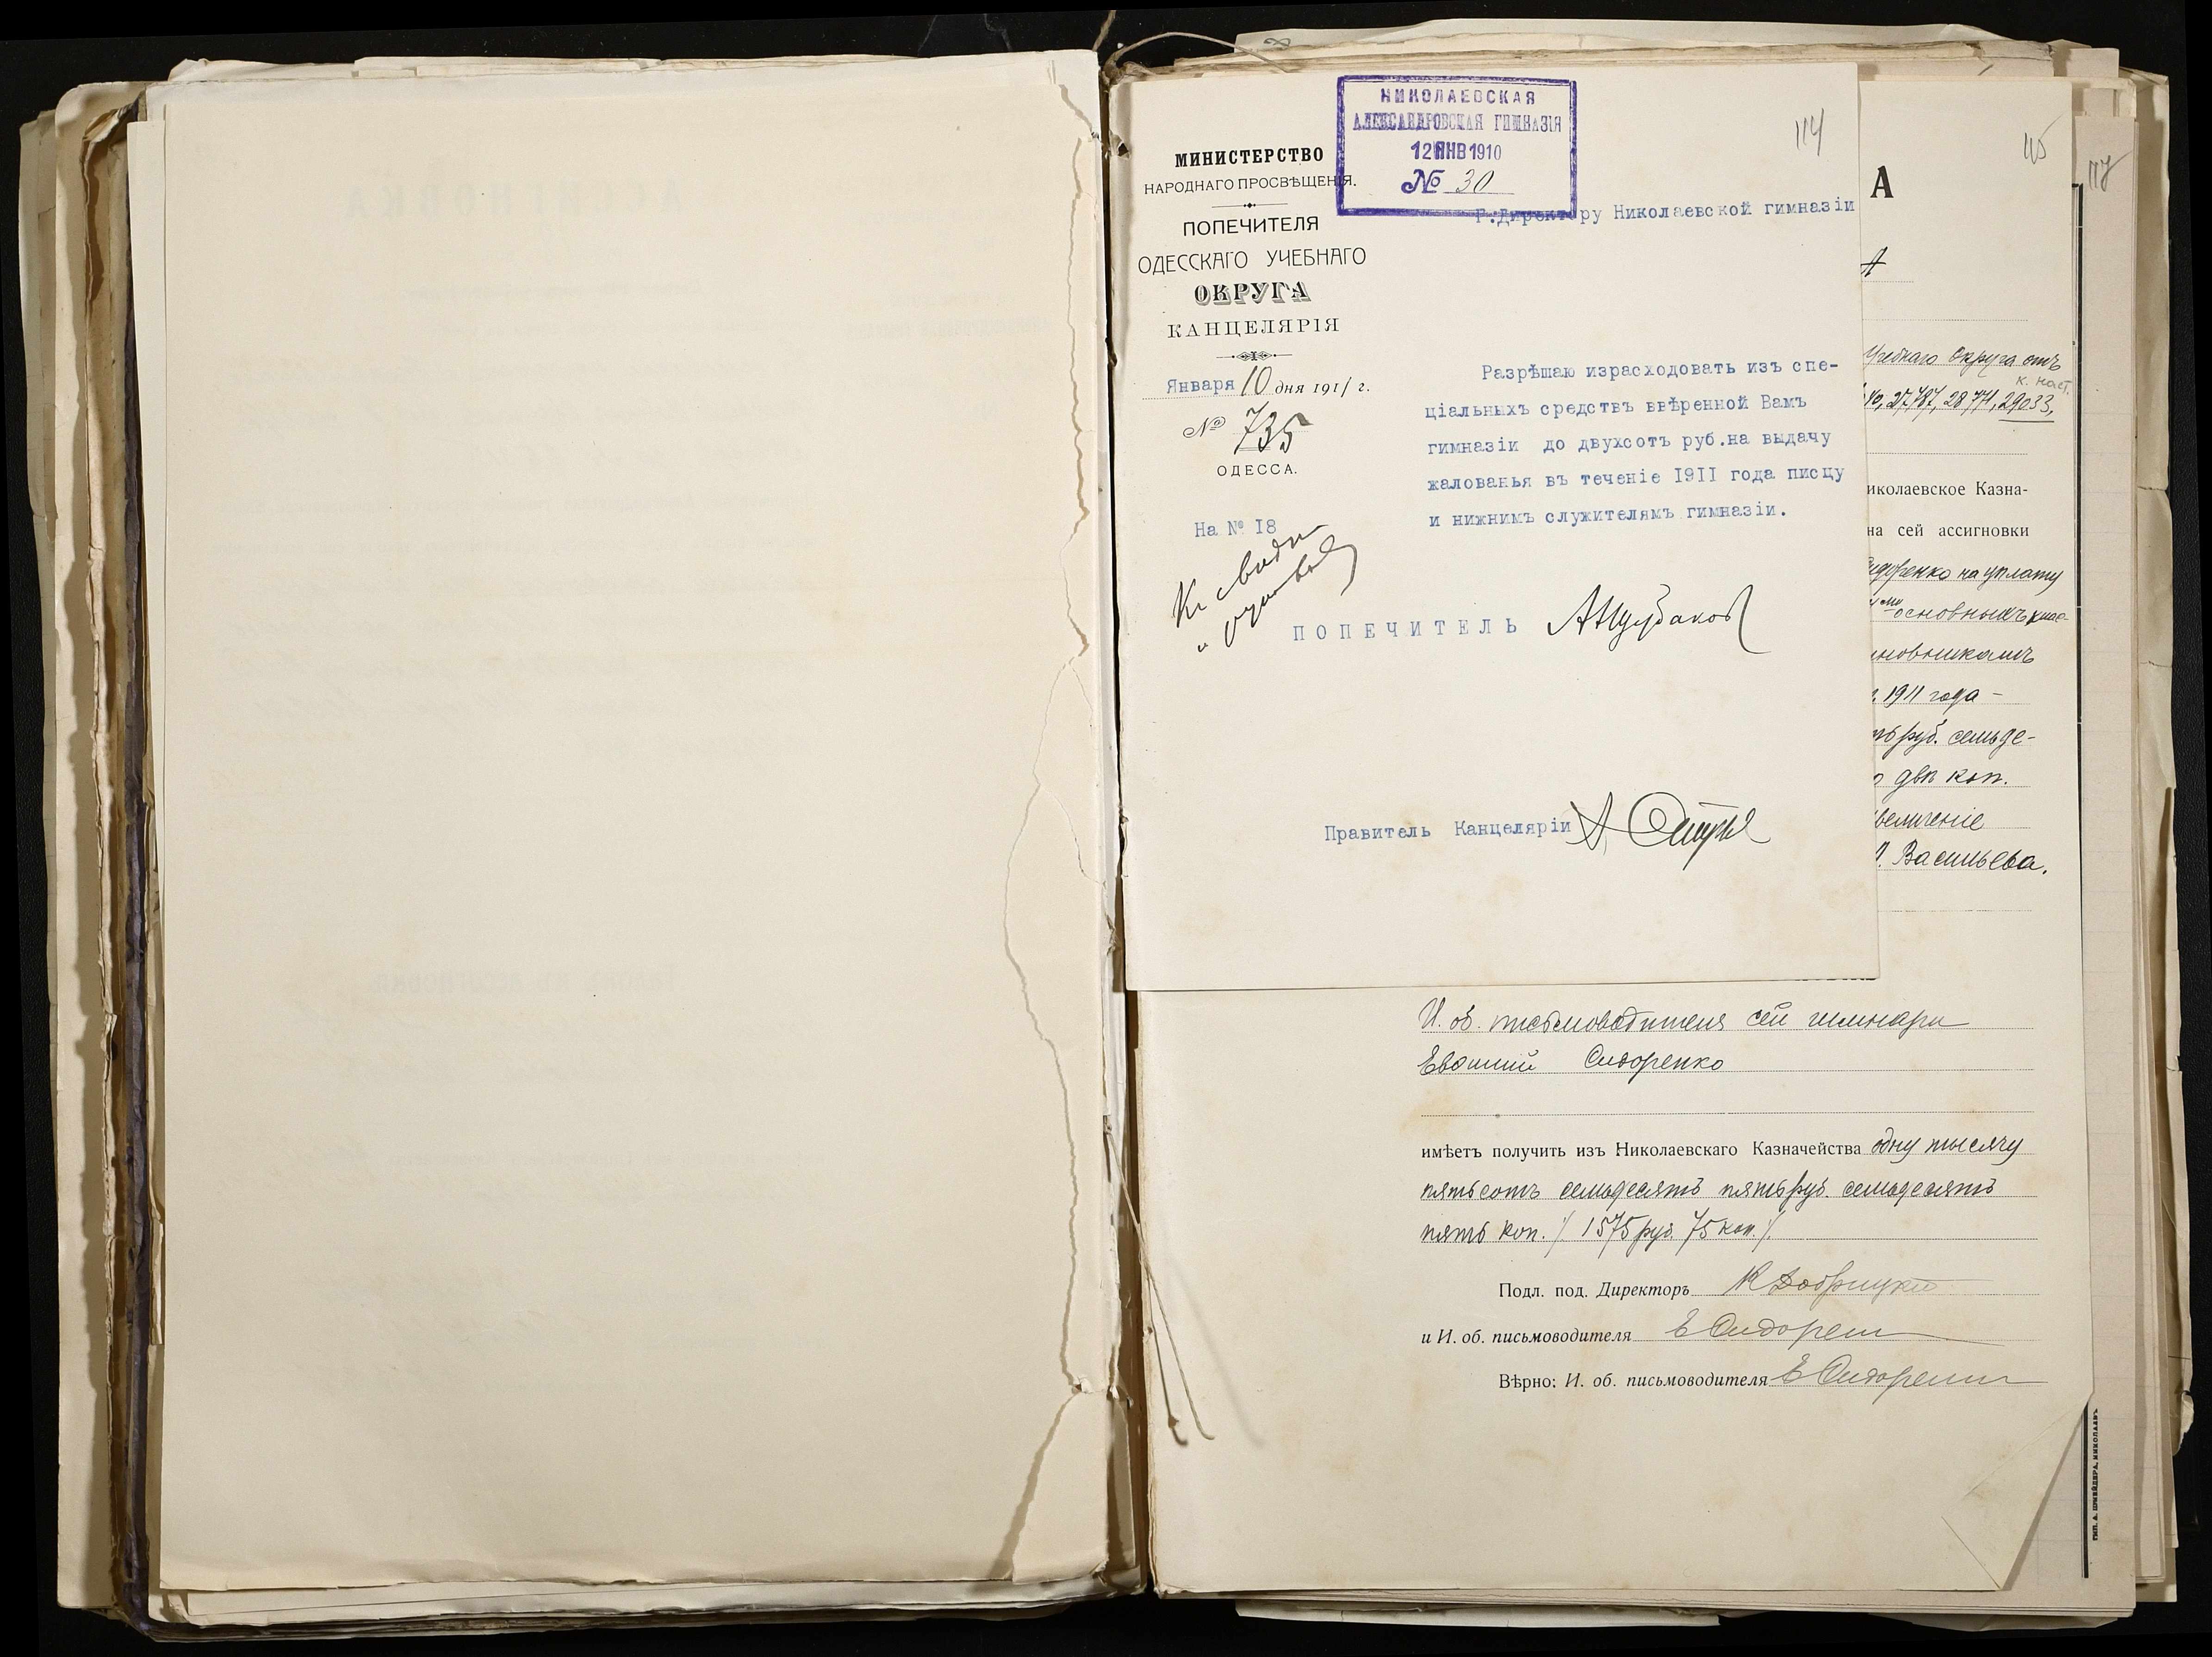 НИКОЛАЕВСКАЯ
АЛЕКСАНДРОВСКАЯ ГИМНАЗІЯ
12 ЯНВ 1910
№ 30
114
МИНИСТЕРСТВО
НАРОДНАГО ПРОСВѢЩЕНІЯ.
ПОПЕЧИТЕЛЯ
ОДЕССКАГО УЧЕБНАГО
ОКРУГА
КАНЦЕЛЯРІЯ
Января 10 дня 1911 г.
№ 735
ОДЕССА.
На № I8
Г.Директору Николаевской гимназіи
Разрѣшаю израсходовать изъ спе-
ціальныхъ средствъ ввѣренной Вамъ
гимназіи до двухсотъ руб.на выдачу
жалованья въ теченіе I9II года писцу
и нижнимъ служителямъ гимназіи.
ПОПЕЧИТЕЛЬ
Правитель Канцеляріи
115
117
А
Учебнаго Округа отъ
27787, 28771, 29033,
иколаевское Казна-
на сей ассигновки
идоренко на уплату
основныхъ
иновникамъ
1911 года —
руб. семьде-
двѣ коп.
Васильева.
И. об. письмоводителя сей
Сидоренко
имѣетъ получить изъ Николаевскаго Казначейства одну тысячу
пятьсотъ семьдесятъ пять руб. семьдесятъ
пять коп. /1575 руб. 75 коп./.
Подл. под. Директоръ
и И. об. письмоводителя Е Сидорен
Вѣрно: И. об. письмоводителя Е Сидорен
ТИП. А. ШНЕЙДЕРА, НИКОЛАЕВЪ.